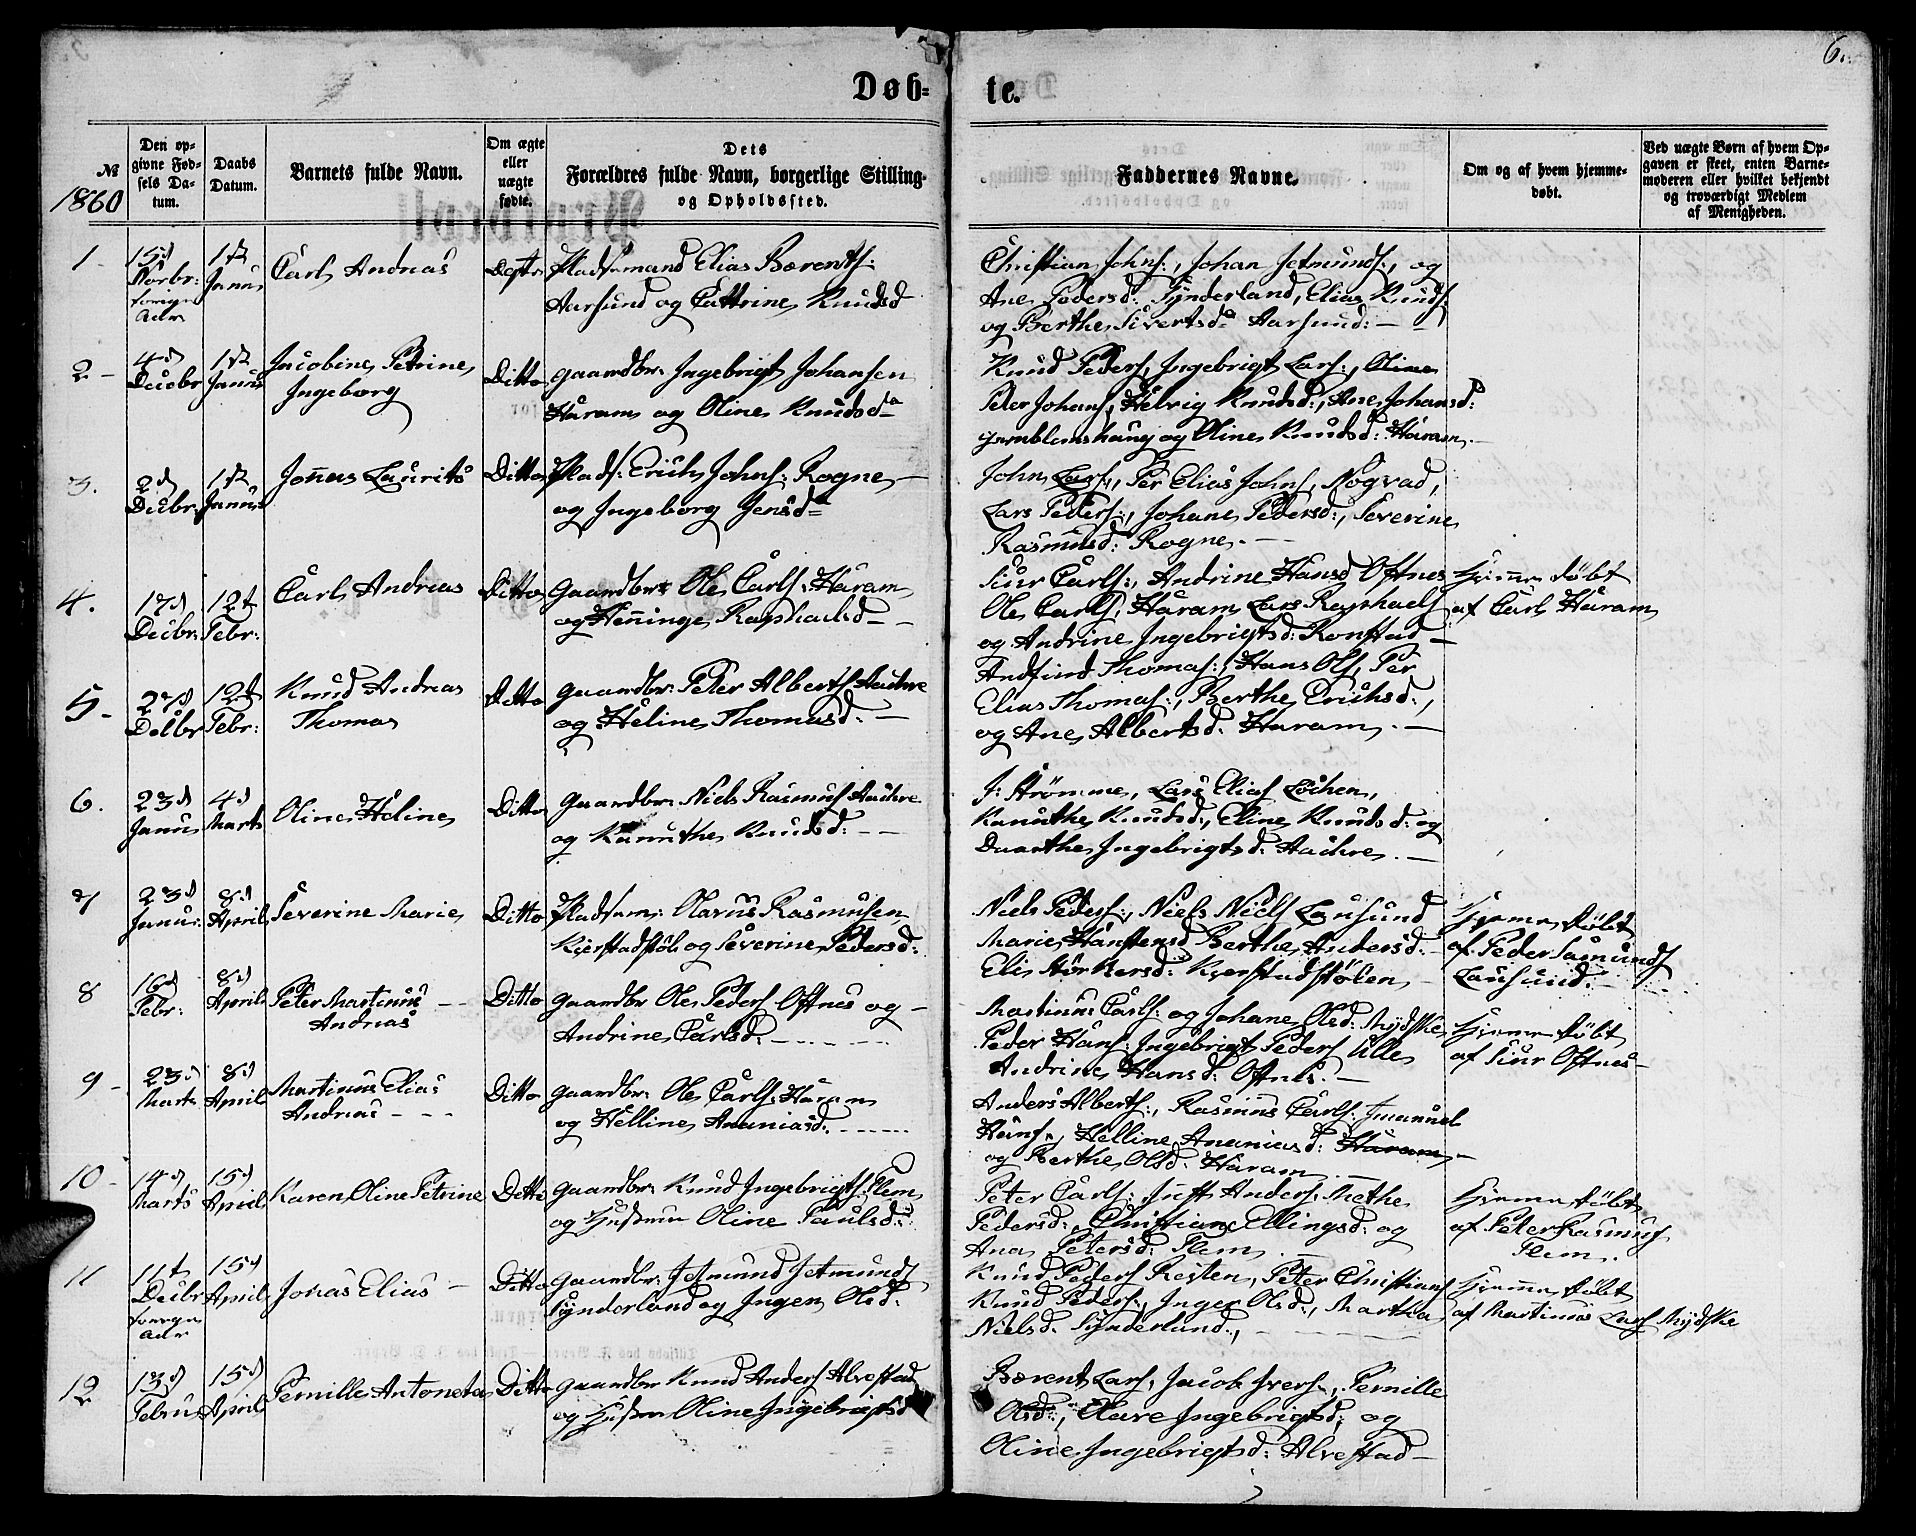 6.
Døb=
te.
№
1860
Den opgivne Fødsels Datum.
Daabs Datum.
Barnets fulde Navn.
Om ægte eller uægte fødte.
Dets Forældres fulde Navn, borgerlige Stilling og Opholdssted.
Faddernes Navne.
Om og af hvem hjemmedøbt.
Ved uægte Børn af hvem Opgaven er skeet, enten Barnemoderen eller hvilket bekjendt og troværdigt Medlem af Menigheden.
1
15d Novbr: forrige Aar
1st Januar
Carl Andreas
Ægte
Pladsmand Elias Bærents:
Aarsund og Cathrine Knudsd
Christian Johns:, Johan Jetmunds:, og
Ane Pedersd: Synderland, Elias Knuds:
og Berthe Sivertsd: Aarsund: —
2 -
4d Decbr
1st Januar
Jacobine Petrine
Ingeborg
Ditto
Gaardbr: Ingebrigt Johansen
Haram og Oline Knudsd
Knud Peders, Ingebrigt Lars:, Oline
Peter Johans, Helvig Knudsd:, Ane Johansd:
og Oline Knudsd: Haram. —
3.
2d Decbr
1st Januar
Jonnas Laurits
Ditto
Plads: Erich Johns: Rogne —
og Ingeborg Jensd
John Lars, Per Elias Johns, Nogvad,
Lars Peders:, Johane Pedersd:, Severine
Rasmusd: Rogne. —
4.
17d Decbr:
12t Febr:
Carl Andreas
Ditto
Gaardbr: Ole Carls: Haram
og Henninge Raphaelsd —
Siur Carls:, Andrine Hansd Oftnes
Ole Carls, Haram Lars Raphaels
og Andrine Ingebrigtsd: Ronstad —
Hjemmedøbt
af Carl Haram
5 -
27d Decbr
12t Febr:
Knud Andreas
Thomas
Ditto
Gaardbr: Peter Alberts Haahre
og Heline Thomasd. —
Andfind Thomas:, Hans Ols, Per
Elias Thomas:, Berthe Erichsd:,
og Ane Albertsd: Haram. —
6.
23d Janu
4d Marts
Oline Heline
Ditto
Gaardbr: Niels Rasmus Haahre
og Kanuthe Knudsd: —
J: Strömme, Lars Elias Lochen,
Kanuthe Knudsd:, Eline Knudsd: og
Daarthe Ingebrigtsd: Haahre. —
7
23d Janu:
8d April
Severine Marie
Ditto
Pladsm: Olarus Rasmusen
Kjerstadstöl: og Severine Pedersd:
Niels Peders:, Niels Niels Lausund
Marie Hanstensd Berthe Andersd: —
Eli Störkersd: Kjerstadstölen —
Hjemmedøbt
af Peder Samunds
Lausund. —
8
16d Febr:
8d April
Peter Martinus —
Andreas
Ditto
Gaardbr Ole Peders Oftnes og —
Andrine Carlsd. —
Martinus Carls: og Johane Olsd: Mydske
Peder Hans: Ingebrigt Peders Ulle
Andrine Hansd: Oftnes. —
Hjemmedøbt
af Siur Oftnes —
9 -
23d Marts
8d April
Martinus Elias
Andreas —
Ditto
Gaardbr: Ole Carls: Haram
og Helline Ananiasd. —
Anders Alberts:, Rasmus Carls: Imanuel
Hans:, Helline Ananiasd: Haram —
og Berthe Olsd: Haram —
10 -
14d Marts
15d April
Karen Oline Petrine
Ditto
Gaardbr: Knud Ingebrigts Flem
og Hustru Oline Paulsd:
Peter Carls: Just Anders: Methe
Pedersd:, Christiane Ellingsd: og
Ana Petersd: Flem —
Hjemmedøbt
af Peter Rasmus
Flem.
11
11t Decbr forrige Aar
15d April
Jonas Elias —
Ditto
Gaardbr: Jetmund Jetmunds
Synderland og Inger Olsd:
Knud Peders Reiten, Peter Christians
Knud Peders:, Inger Olsd:, Martha
Nielsd. Synderland., —
Hjemmedøbt
af Martinus Lars Mydske
12
13d Februar
15d April
Pernille Antoneta
Ditto
Gaardbr Knud Anders Alvestad
og Hustru Oline Ingebrigtsd
Bærent Lars, Jacob Ivers:, Pernille
Olsd:, Olave Ingebrigtsd: og
Oline Ingebrigtsd: Alvestad —